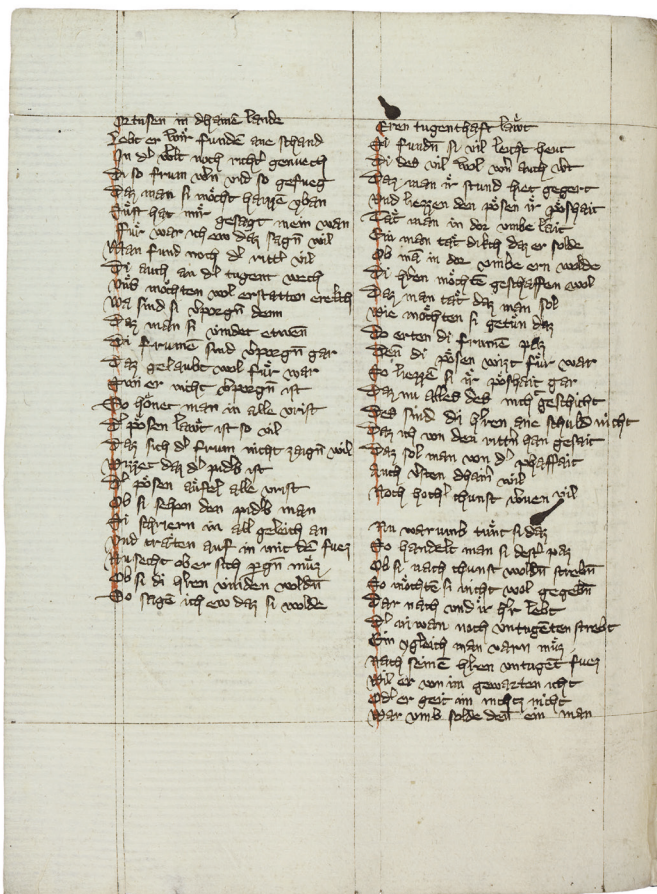 Artusen in dhainē lande
Lebt er wir fundē ane schand
In d' welt noch richt' genuech
Di so frum wērn vnd so gefueg
Daz man si möcht haizzē yban
Sust hat mir gesagt mein wan
Für war ich ew daz sagn wil
Man fund noch d' rittr vil
Di auch an d' tugent wech
Vns möchten wol erstatten erekch
Wa sind si v'porgn denn
Daz man si vindet etwen
Di frumē sind v'porgn gar
Daz gelaubt wol für war
swi er nicht v'porgn ist
So hönet man in alle vrist
D' pösen läwt ist so vil
Daz sich d' frum nicht zaign wil
Wizzet daz d' pidb ist
D' pösen äufel alle vrist
Ob si sehen den pidb man
Di schriern in all geleich an
Vnd träten auf in mit dē fuez
Nu secht ob er sich p'gn muz
Ob si di h'ren vinden woldn
So sagē ich ew daz si wolde
Eren tugenthaft läwt
Si fundn si vil leicht heut
Di des vil wol w'n auch w't
Daz man ir stund hiet gegert
Vnd liezzen den pösen ir pöshait
Tät man in dor vmbe lait
Ein man tät dikch daz er solde
Ob mā in dor vmbe ern wolde
Di h'ren möchtē geschaffen wol
Daz man tät daz man sol
Wie möchten si getun daz
So erten di frumē paz
Denn di pösen wizt für war
So liezzē si ir pöshait gar
Daz nu alles des nicht geschicht
Des sind di h'ren ane schuld nicht
Daz ich von den rittn han gesait
Daz sol man von d' phaffait
Auch v'sten dhain' wil
Noch hoch' chunst wuen vil
Nu warumb tunt si daz
So handelt man si dest' paz
Ob si nach chunst woldn strebn
So möchtē si nicht wol gegebn
Dar nach vnd ir h'r lebt
D' in wan noch vntugēten strebt
Ein ygleich man varn muz
Nach seinē h'ren vntugēt fuez
Wil er von im gewarten icht
Od' er geit im nichtz nicht
War vmb solde den ein man